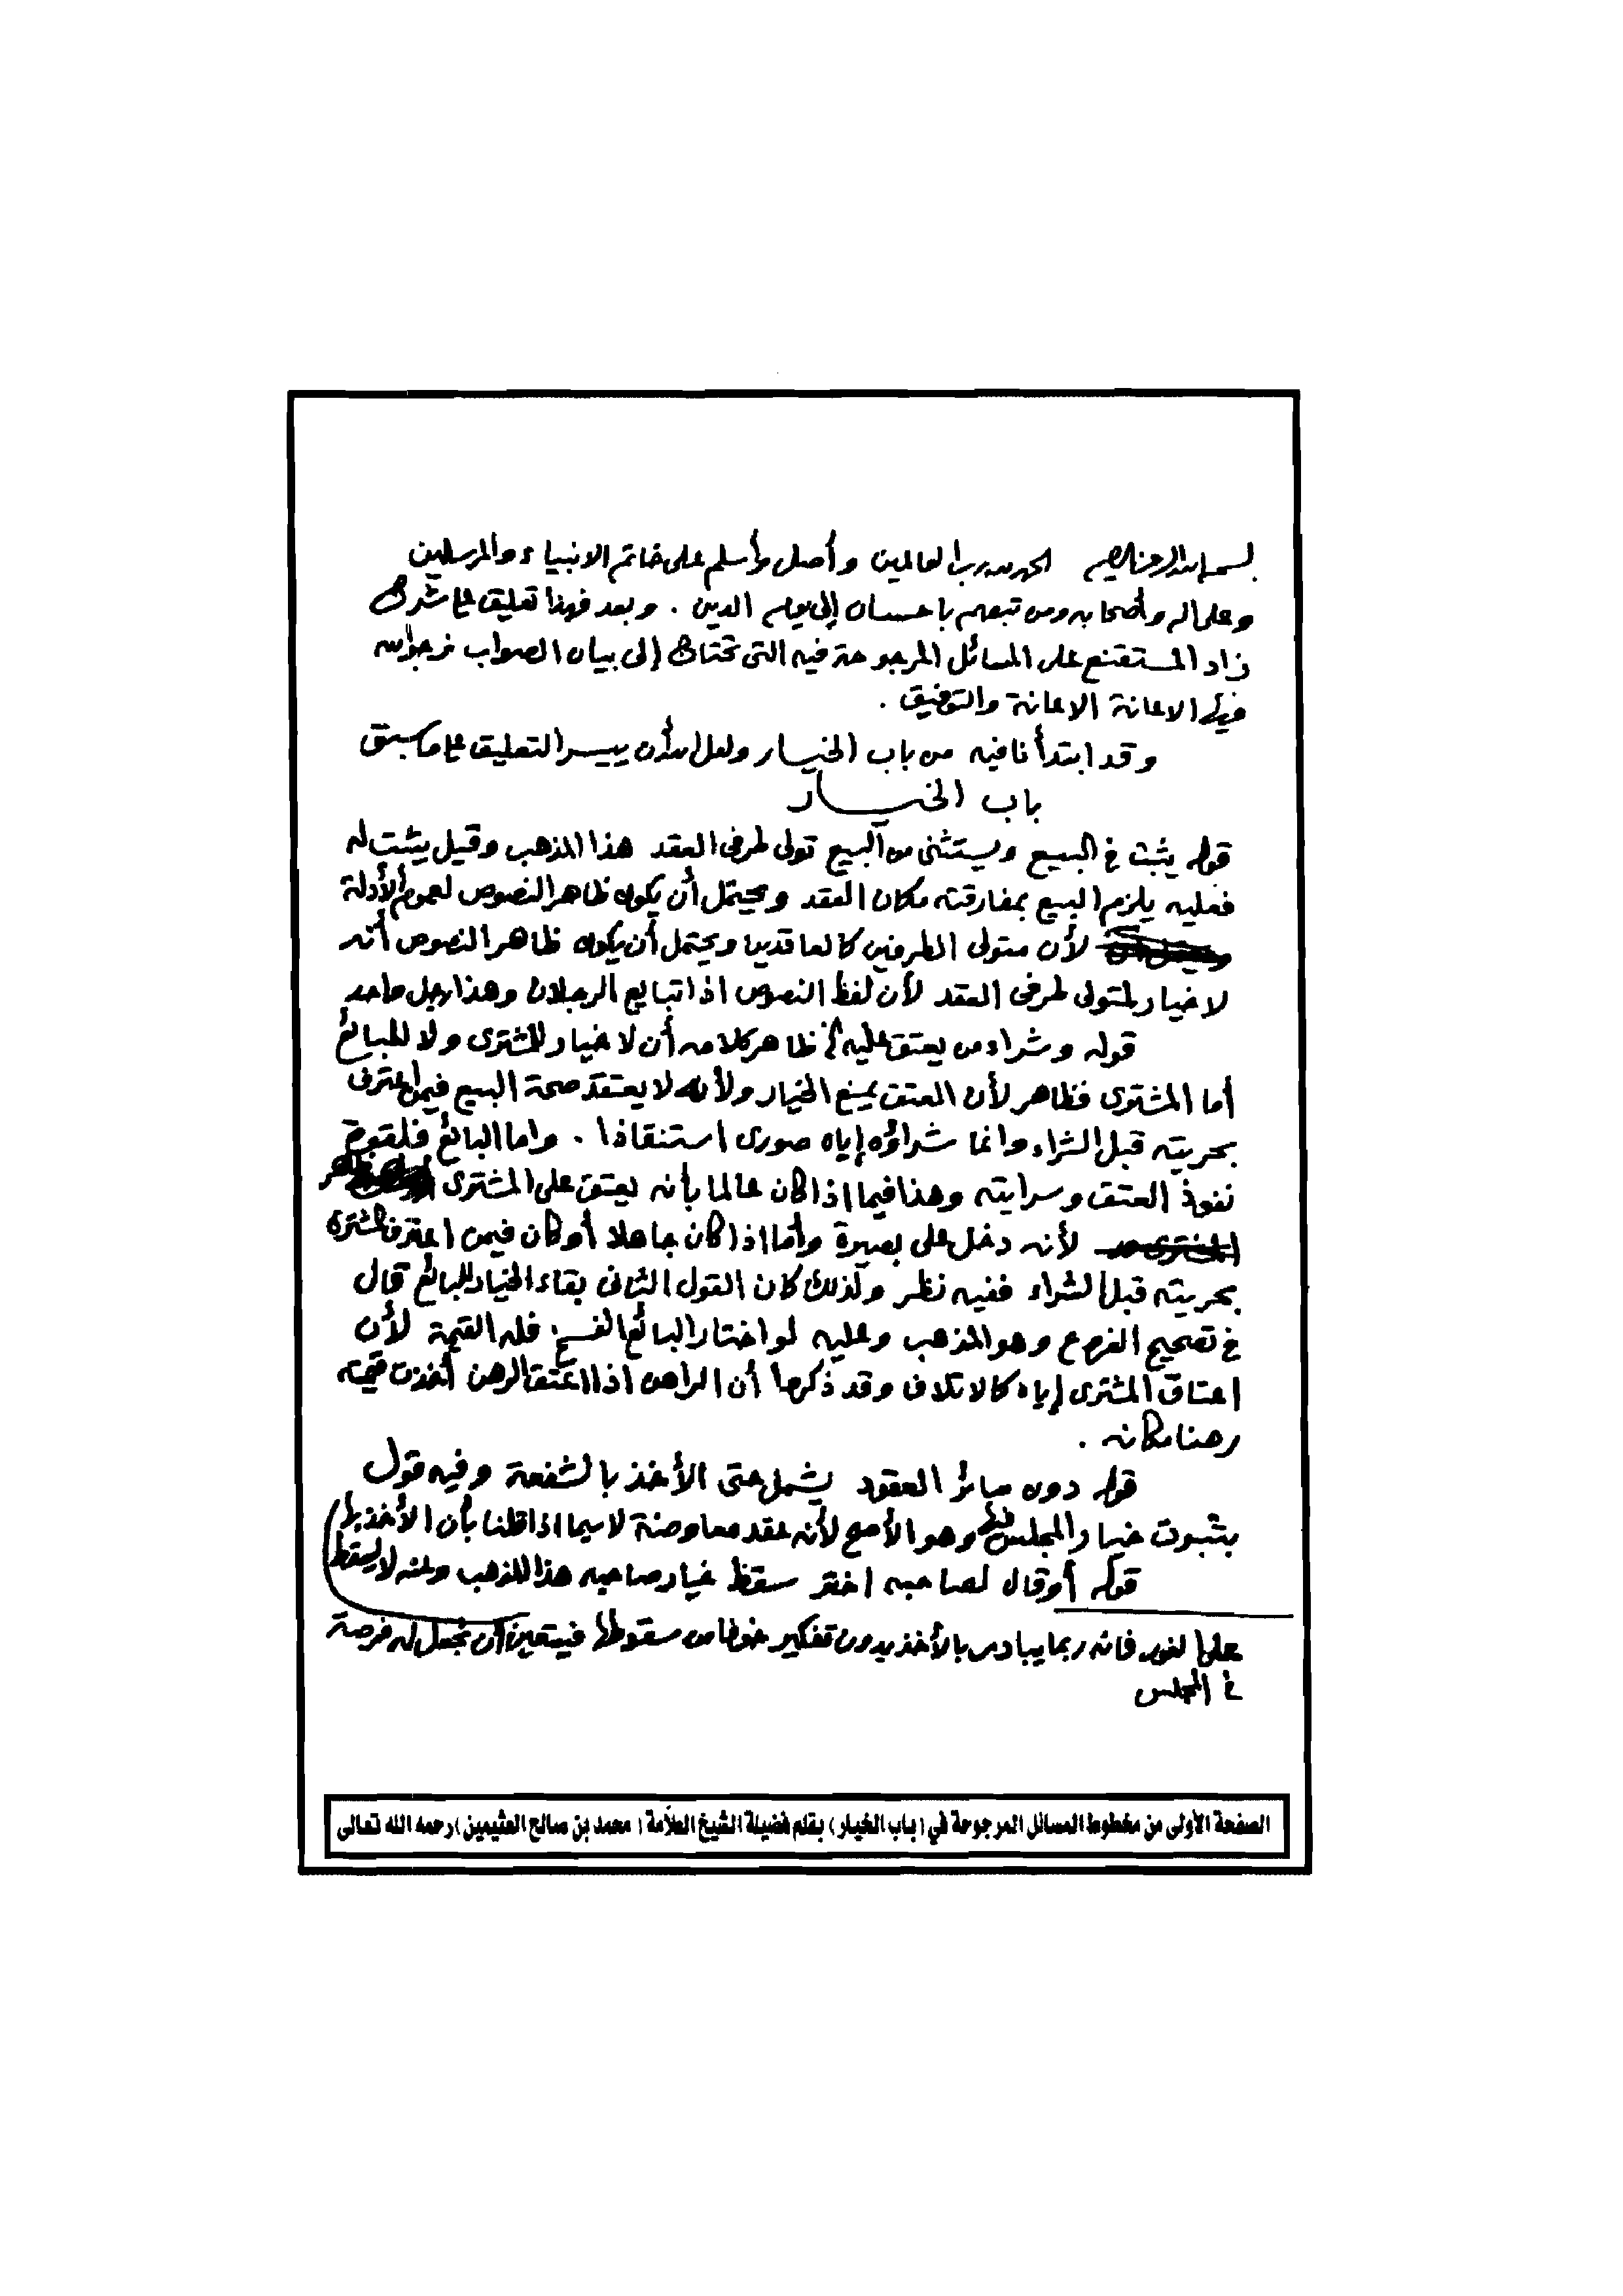 بسم الله الرحمن الرحيم الحمد لله رب العالمين وأصلي وأسلم على خاتم الانبياء والمرسلين
وعلى اله وأصحابه ومن تبعهم باحسان إلى يوم الدين . وبعد فهذا تعليق على شرح
زاد المستقنع على المسائل المرجوحة فيه التي تحتاج إلى بيان الصواب نرجو الله
فيه الاعانة الاعانة والتوفيق .
وقد ابتدأنا فيه من باب الخيار ولعل الله أن ييسر التعليق على ما سبق
باب الخيار
قوله يثبت في البيع ويستثنى من البيع تولى طرفي العقد هذا المذهب وقيل يثبت له
فعليه يلزم البيع بمفارقته مكان العقد ويحتمل أن يكون ظاهر النصوص لعموم الأدلة
لأن متولى الطرفين كالعاقدين ويحتمل أن يكون ظاهر النصوص أنه
لا خيار لمتولى طرفي العقد لأن لفظ النصوص اذا تبايع الرجلان وهذا رجل واحد
قوله وشراء من يعتق عليه ظاهر كلامه أن لا خيار للمشترى ولا للبائع
أما المشترى فظاهر لأن العتق يمنع الخيار ولأنه لا يعتقد صحة البيع فيمن اعترف
بحريته قبل الشراء وانما شراؤه إياه صورى استنقاذا . واما البائع فلقوة
نفوذ العتق وسرايته وهذا فيما اذا كان عالما بأنه يعتق على المشترى
لأنه دخل على بصيرة وأما اذا كان جاهلا أو كان فيمن اعترف المشترى
بحريته قبل الشراء ففيه نظر ولذلك كان القول الثاني بقاء الخيار للبائع قال
في تصحيح الفروع وهو المذهب وعليه لو اختار البائع الفسخ فله القيمة لأن
اعتاق المشترى إياه كالاتلاف وقد ذكروا أن الراهن اذا اعتق الرهن أخذت قيمته
رهنا مكانه .
قوله دون سائر العقود يشمل حتى الأخذ بالشفعة وفيه قول
بثبوت خيار المجلس فيها وهو الأصح لأنه عقد معاوضة لا سيما اذا قلنا بأن الأخذ بها
على الفور فانه ربما يبادر بالأخذ بدون تفكير خوفا من سقوطها فيتعين أن نجعل له فرصة
في المجلس
قوله أو قال لصاحبه اختر سقط خيار صاحبه هذا المذهب وعنه لا يسقط
الصفحة الأولى من مخطوط المسائل المرجوحة في (باب الخيار) بقلم فضيلة الشيخ العلامة (محمد بن صالح العثيمين) رحمه الله تعالى